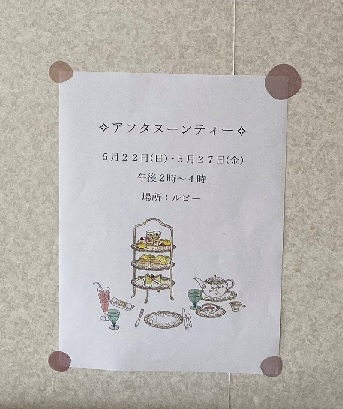 ✧アフタヌーンティー✧
５月２２日(日)・５月２７日(金)
午後２時～４時
場所：ルビー